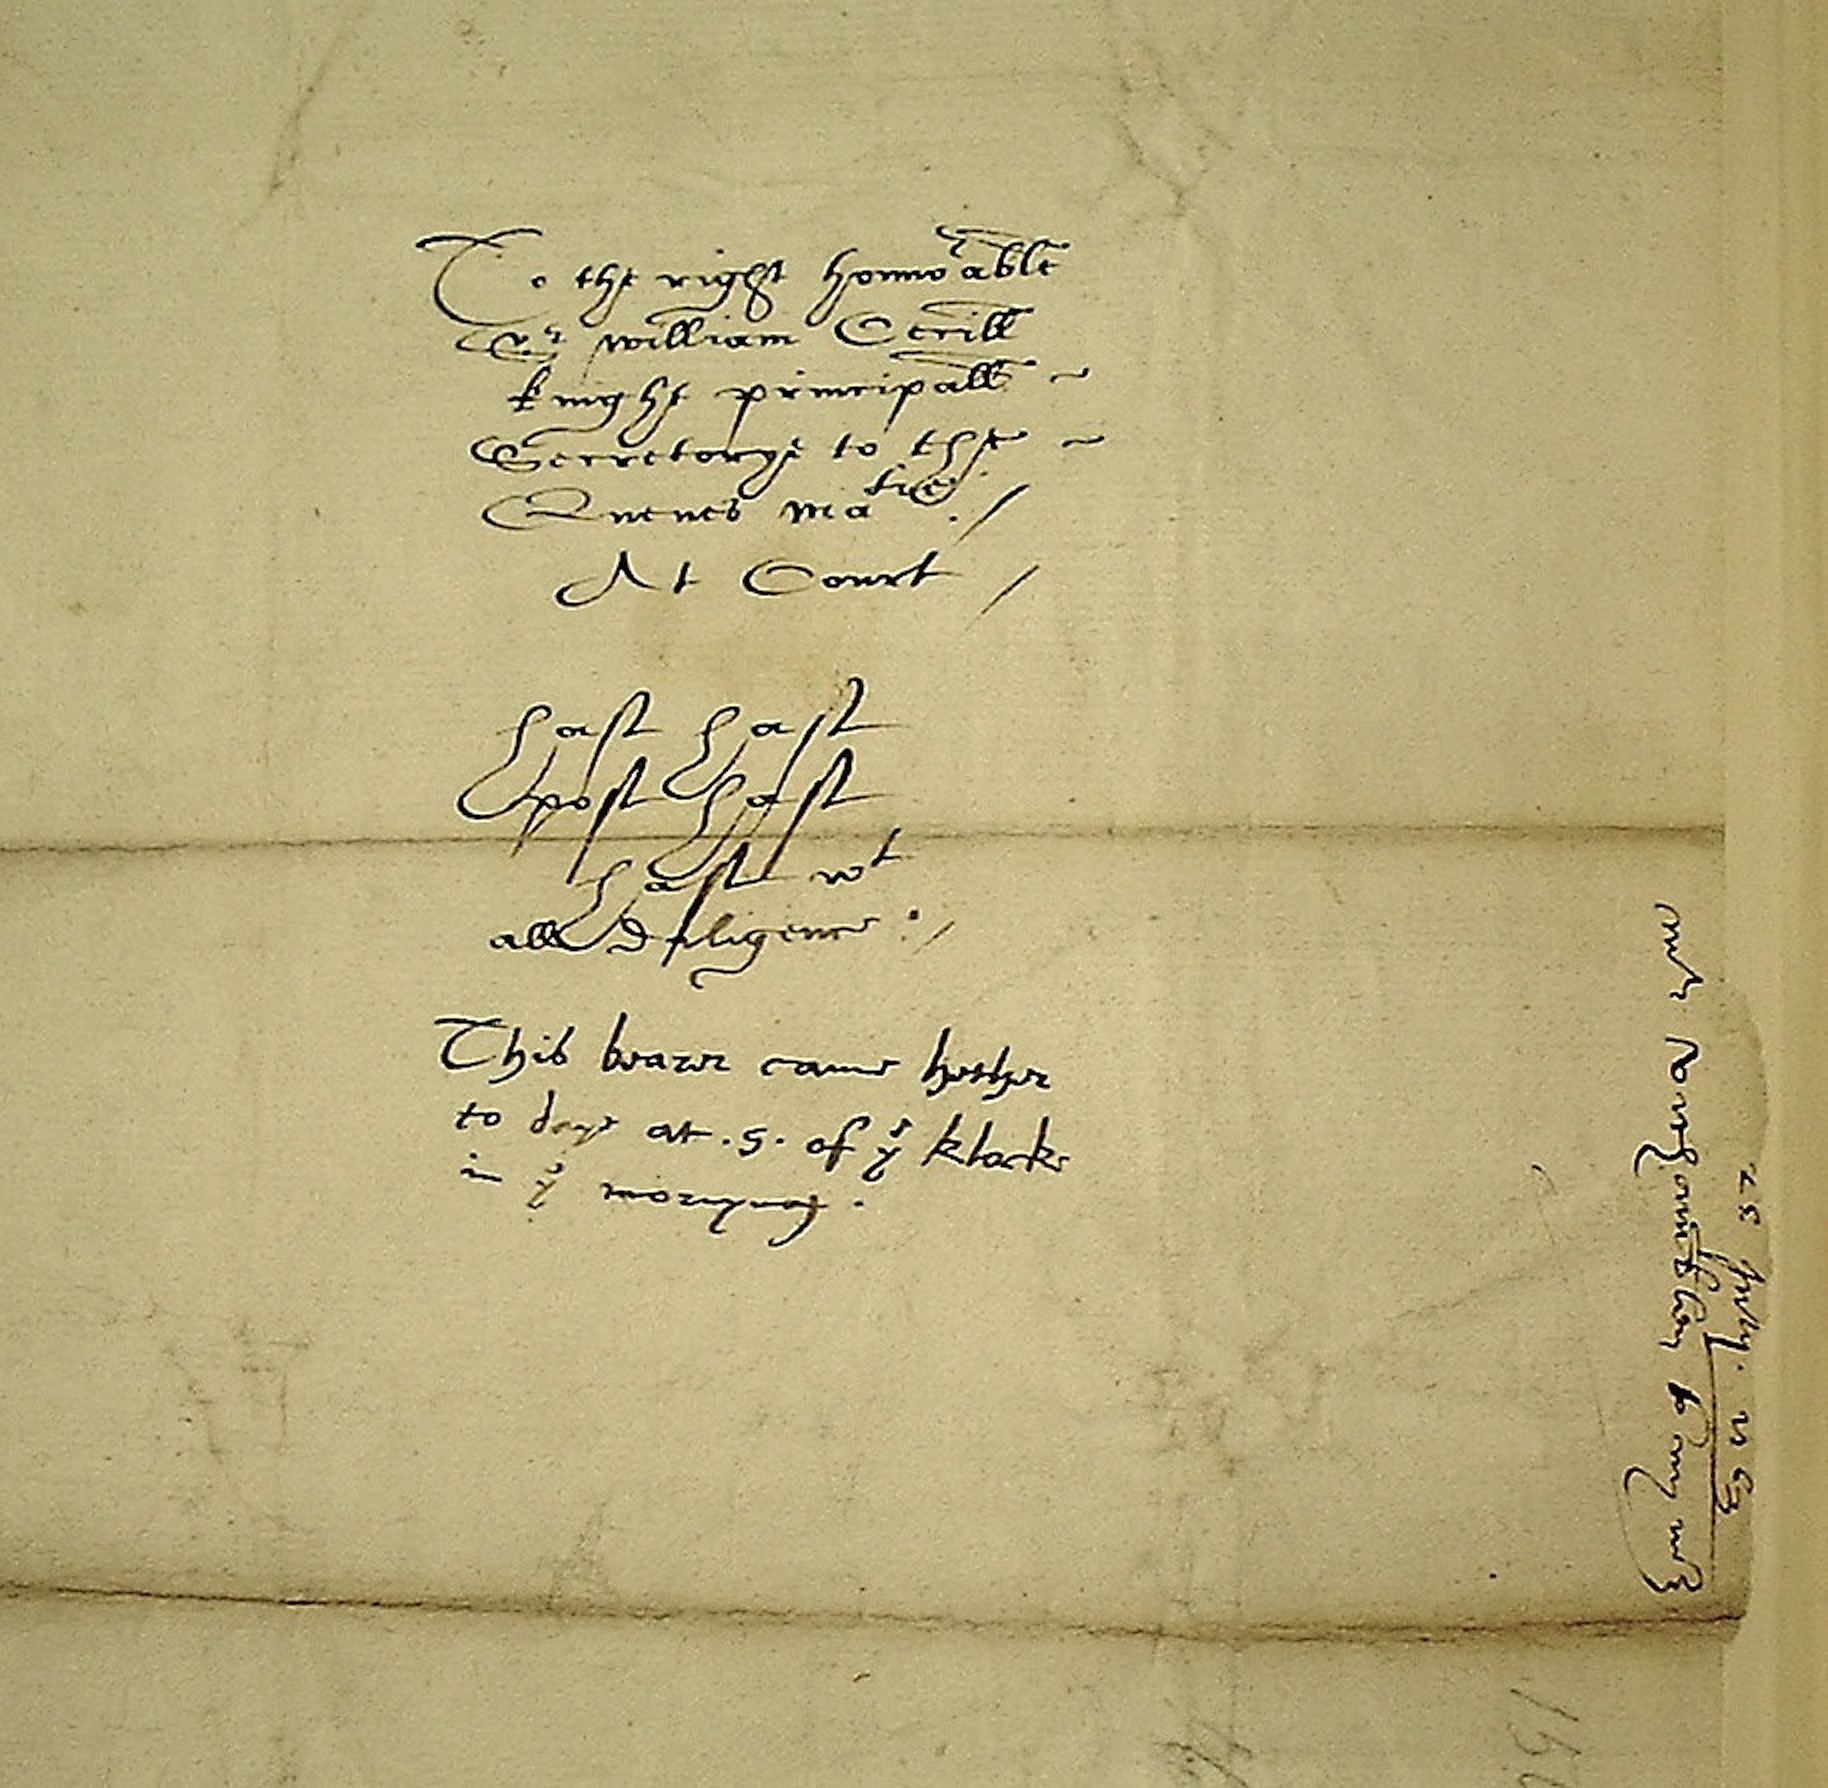 To the right honno^r able
S^r william Cecill
knight principall ~
Secretorye to the ~
Quenes ma^ties ./
At Court /
hast hast
post hast
hast w^t
all Deligence :/
This bearer came hether
to daye at .5. of y^e klocke
in y^e mornyng .
25 July .